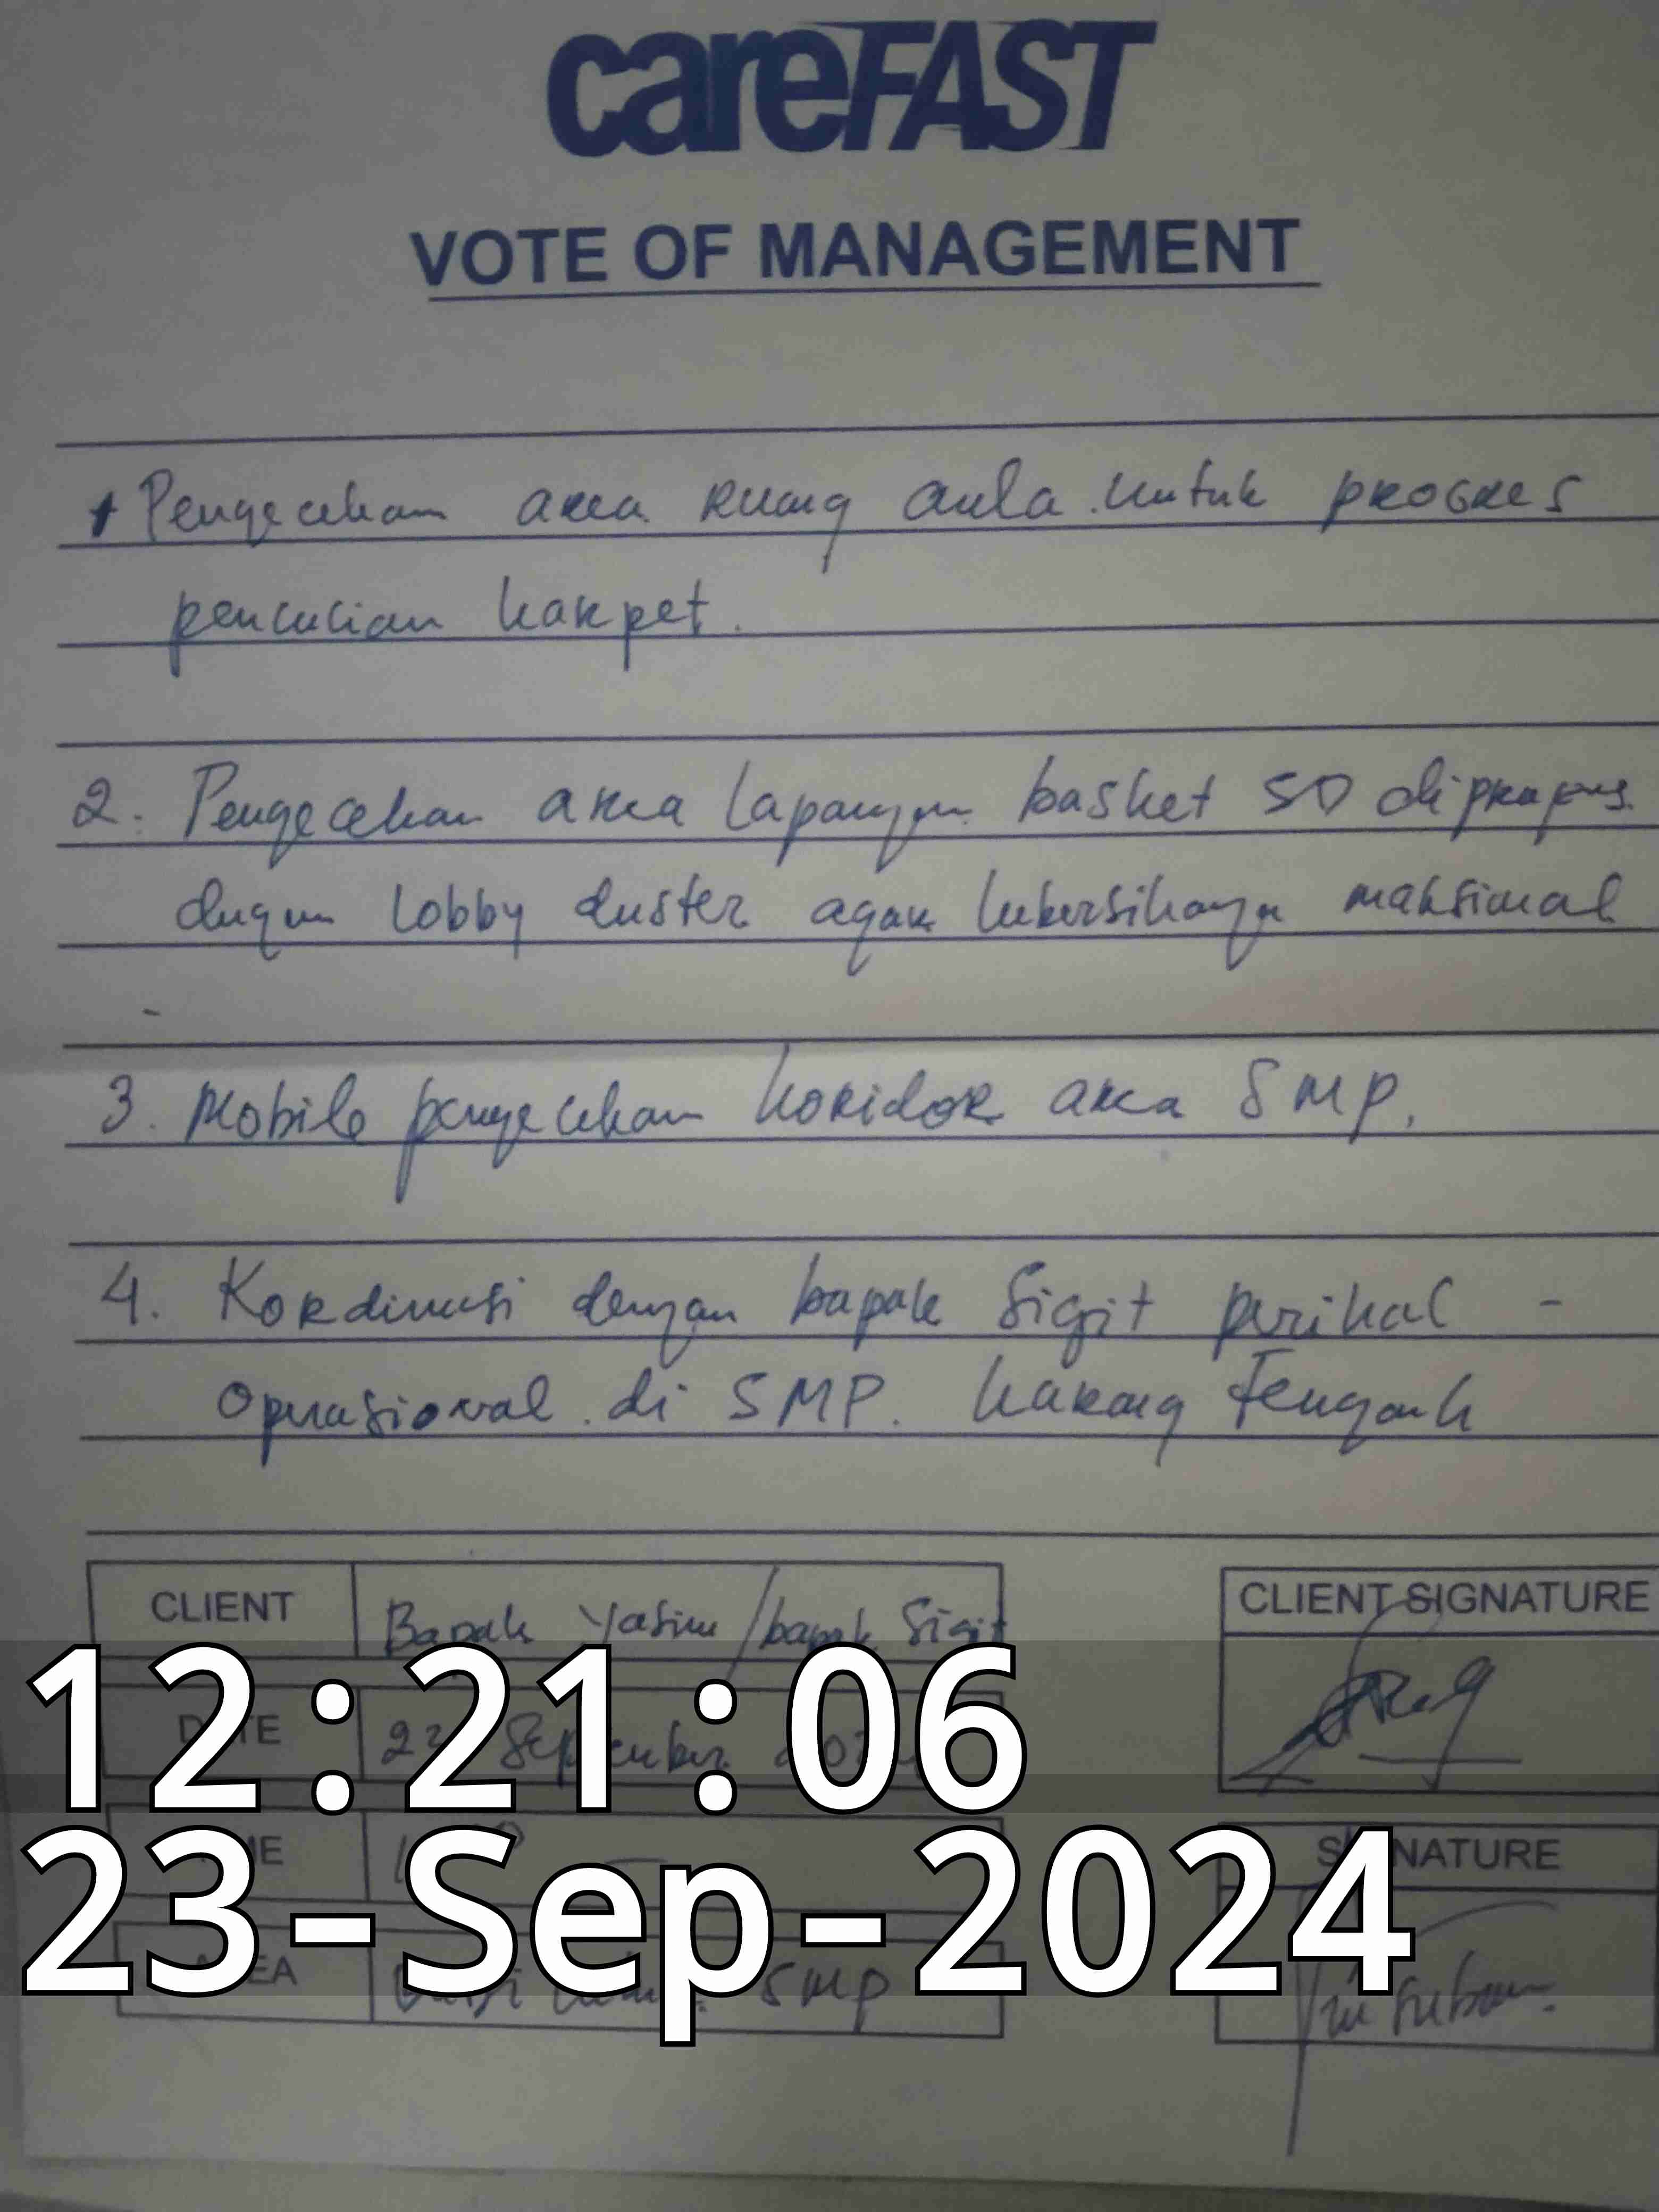 careFAST
VOTE OF MANAGEMENT
1 Pengecekan area ruang aula untuk progres
pencucian karpet.
2. Pengecekan area lapangan basket SD
dengan lobby duster agar kebersihanya maksimal
3. Mobile pengecekan koridor area SMP.
4. Kordinasi dengan bapak Sigit perihal -
Operasional di SMP. karang Tengah
CLIENT Bapak Yasin / bapak Sigit
CLIENT SIGNATURE
12:21:06
DATE September
23-Sep-2024
SIGNATURE
AREA SMP